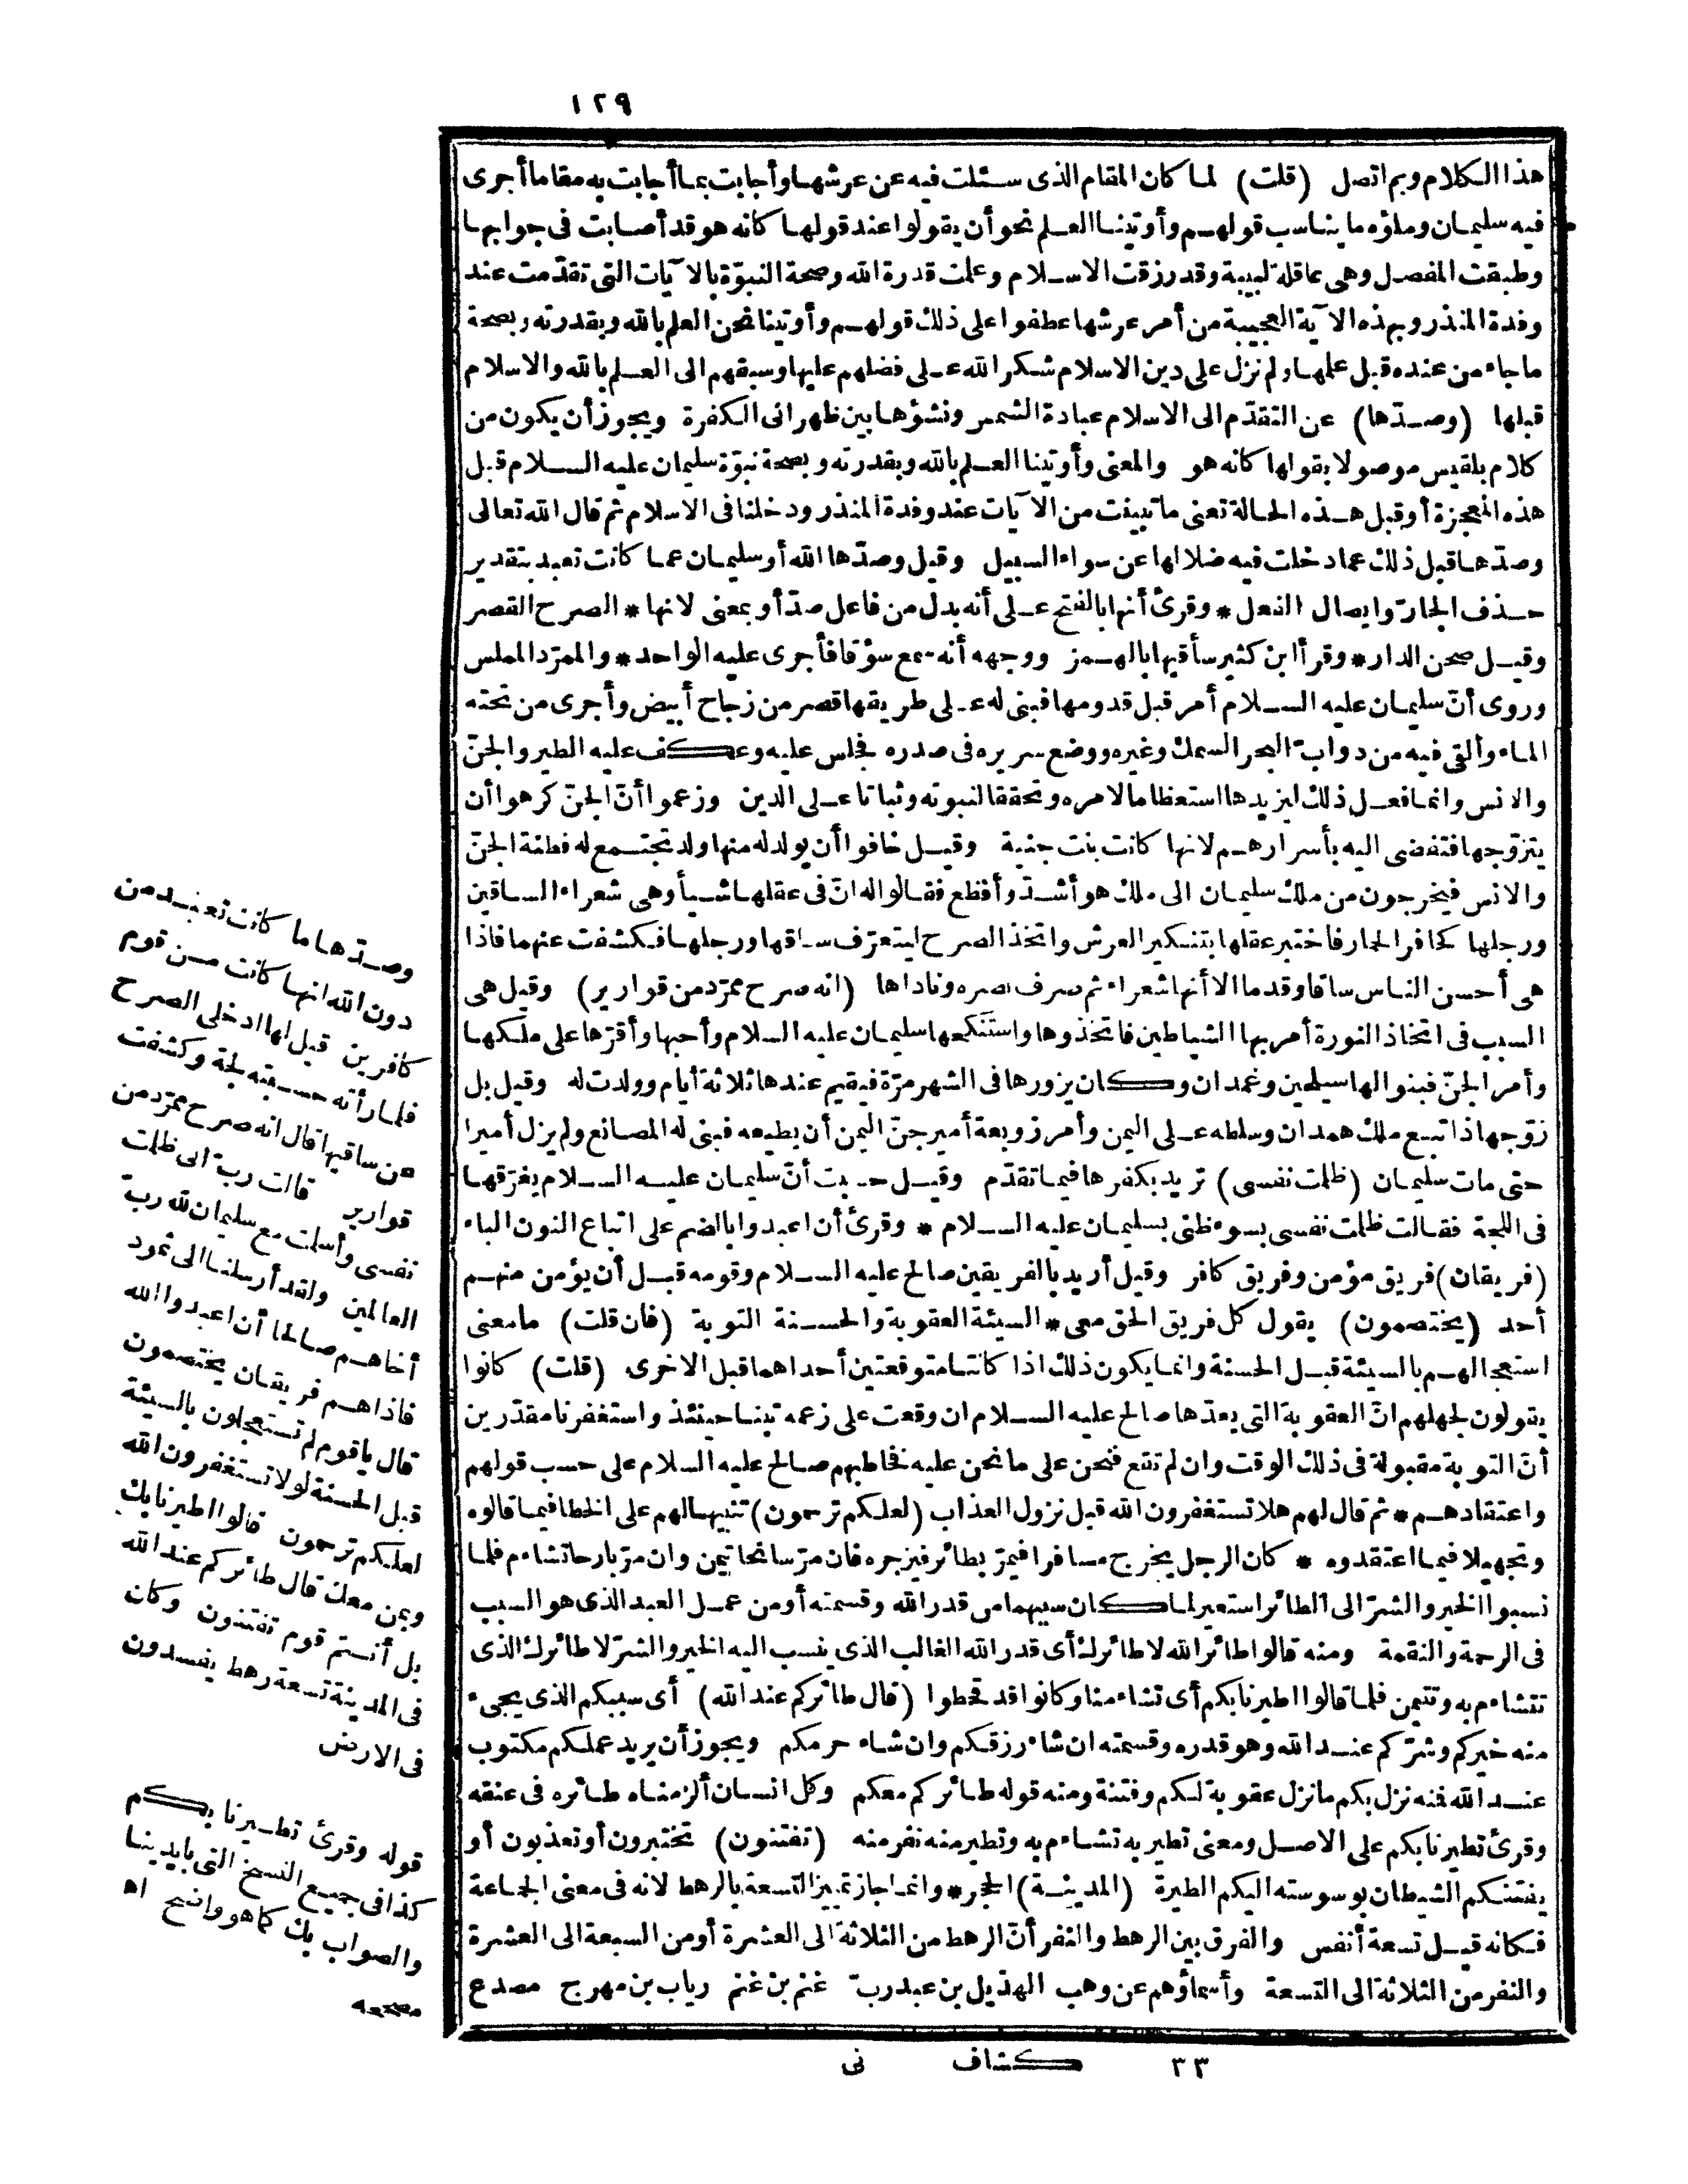 ١٢٩
هذا الكلام وبم اتصل (قلت) لما كان المقام الذى سئلت فيه عن عرشها وأجابت بما أجابت به مقاما أجرى
فيه سليمان وملؤه ما يناسب قولهم وأوتينا العلم نحو أن يقولوا عند قولها كأنه هو قد أصابت فى جوابها
وطبقت المفصل وهى عاقلة لبيبة وقد رزقت الاسلام وعلمت قدرة الله وصحة النبوّة بالآيات التى تقدّمت عند
وفدة المنذر وبهذه الآية العجيبة من أمر عرشها عطفوا على ذلك قولهم وأوتينا نحن العلم بالله وبقدرته وبصحة
ما جاء من عنده قبل علمها ولم نزل على دين الاسلام شكر الله على فضلهم عليها وسبقهم الى العلم بالله والاسلام
قبلها (وصدّها) عن التقدّم الى الاسلام عبادة الشمس ونشؤها بين ظهرانى الكفرة ويجوز أن يكون من
كلام بلقيس موصولا بقولها كأنه هو والمعنى وأوتينا العلم بالله وبقدرته وبصحة نبوّة سليمان عليه السلام قبل
هذه المعجزة أو قبل هذه الحالة تعنى ما تبينت من الآيات عند وفدة المنذر ودخلنا فى الاسلام ثم قال الله تعالى
وصدّها قبل ذلك عما دخلت فيه ضلالها عن سواء السبيل وقيل وصدّها الله أو سليمان عما كانت تعبد بتقدير
حذف الجارّ وايصال الفعل * وقرئ أنها بالفتح على أنه بدل من فاعل صدّ أو بمعنى لانها * الصرح القصر
وقيل صحن الدار * وقرأ ابن كثير سأقيها بالهمز ووجهه أنه سمع سؤقا فأجرى عليه الواحد * والممرّد المملس
وروى أنّ سليمان عليه السلام أمر قبل قدومها فبنى له على طريقها قصر من زجاج أبيض وأجرى من تحته
الماء وألقى فيه من دوابّ البحر السمك وغيره ووضع سريره فى صدره فجلس عليه وعكف عليه الطير والجنّ
والانس وانما فعل ذلك ليزيدها استعظاما لامره وتحققا لنبوته وثباتا على الدين وزعموا أنّ الجنّ كرهوا أن
يتزوّجها فتفضى اليه بأسرارهم لانها كانت بنت جنية وقيل خافوا أن يولد له منها ولد تجتمع له فطنة الجنّ
والانس فيخرجون من ملك سليمان الى ملك هو أشدّ وأفظع فقالوا له انّ فى عقلها شيأ وهى شعراء الساقين
ورجلها كحافر الحمار فاختبر عقلها بتنكير العرش واتخذ الصرح ليتعرّف ساقها ورجلها فكشفت عنهما فاذا
هى أحسن الناس ساقا وقدما الا أنها شعراء ثم صرف بصره وناداها (انه صرح ممرّد من قوارير) وقيل هى
السبب فى اتخاذ النورة أمر بها الشياطين فاتخذوها واستنكحها سليمان عليه السلام وأحبها وأقرّها على ملكها
وأمر الجنّ فبنوا لها سيلحين وغمدان وكان يزورها فى الشهر مرّة فيقيم عندها ثلاثة أيام وولدت له وقيل بل
زوّجها ذا تبع ملك همدان وسلطه على اليمن وأمر زوبعة أمير جنّ اليمن أن يطيعه فبنى له المصانع ولم يزل أميرا
حتى مات سليمان (ظلمت نفسى) تريد بكفرها فيما تقدّم وقيل حسبت أنّ سليمان عليه السلام يغرّقها
فى اللجة فقالت ظلمت نفسى بسوء ظنى بسليمان عليه السلام * وقرئ أن اعبدوا بالضم على اتباع النون الباء
(فريقان) فريق مؤمن وفريق كافر وقيل أريد بالفريقين صالح عليه السلام وقومه قبل أن يؤمن منهم
أحد (يختصمون) يقول كل فريق الحق معى * السيئة العقوبة والحسنة التوبة (فان قلت) ما معنى
استعجالهم بالسيئة قبل الحسنة وانما يكون ذلك اذا كانتا متوقعتين أحداهما قبل الاخرى (قلت) كانوا
يقولون لجهلهم انّ العقوبة التى يعدّها صالح عليه السلام ان وقعت على زعمه تبنا حينئذ واستغفرنا مقدّرين
أنّ التوبة مقبولة فى ذلك الوقت وان لم تقع فنحن على ما نحن عليه فخاطبهم صالح عليه السلام على حسب قولهم
واعتقادهم * ثم قال لهم هلا تستغفرون الله قبل نزول العذاب (لعلكم ترحمون) تنبيها لهم على الخطا فيما قالوه
وتجهيلا فيما اعتقدوه * كان الرجل يخرج مسافرا فيمرّ بطائر فيزجره فان مرّ سانحا تيمن وان مرّ بارحا تشاءم فلما
نسبوا الخير والشرّ الى الطائر استعير لما كان سببهما من قدر الله وقسمته أو من عمل العبد الذى هو السبب
فى الرحمة والنقمة ومنه قالوا طائر الله لا طائرك أى قدر الله الغالب الذى ينسب اليه الخير والشرّ لا طائرك الذى
تتشاءم به وتتيمن فلما قالوا اطيرنا بكم أى تشاءمنا وكانوا قد قحطوا (قال طائركم عند الله) أى سببكم الذى يجىء
منه خيركم وشرّكم عند الله وهو قدره وقسمته ان شاء رزقكم وان شاء حرمكم ويجوز أن يريد عملكم مكتوب
عند الله فمنه نزل بكم ما نزل عقوبة لكم وفتنة ومنه قوله طائركم معكم وكل انسان ألزمناه طائره فى عنقه
وقرئ تطيرنا بكم على الاصل ومعنى تطير به تشاءم به وتطير منه نفر منه (تفتنون) تختبرون أو تعذبون أو
يفتنكم الشيطان بوسوسته اليكم الطيرة (المدينة) الحجر * وانما جاز تمييز التسعة بالرهط لانه فى معنى الجماعة
فكأنه قيل تسعة أنفس والفرق بين الرهط والنفر أنّ الرهط من الثلاثة الى العشرة أو من السبعة الى العشرة
والنفر من الثلاثة الى التسعة وأسماؤهم عن وهب الهذيل بن عبد ربّ غنم بن غنم رياب بن مهرج مصدع
وصدّها ما كانت تعبد من
دون الله انها كانت من قوم
كافرين قيل لها ادخلى الصرح
فلما رأته حسبته لجة وكشفت
عن ساقيها قال انه صرح ممرّد من
قوارير قالت ربّ انى ظلمت
نفسى وأسلمت مع سليمان لله ربّ
العالمين ولقد أرسلنا الى ثمود
أخاهم صالحا أن اعبدوا الله
فاذاهم فريقان يختصمون
قال يا قوم لم تستعجلون بالسيئة
قبل الحسنة لولا تستغفرون الله
لعلكم ترحمون قالوا اطيرنا بك
وبمن معك قال طائركم عند الله
بل أنتم قوم تفتنون وكان
فى المدينة تسعة رهط يفسدون
فى الارض
قوله وقرئ تطيرنا بكم
كذا فى جميع النسخ التى بايدينا
والصواب بك كما هو واضح اه
مصححه
٣٣ كشاف نى